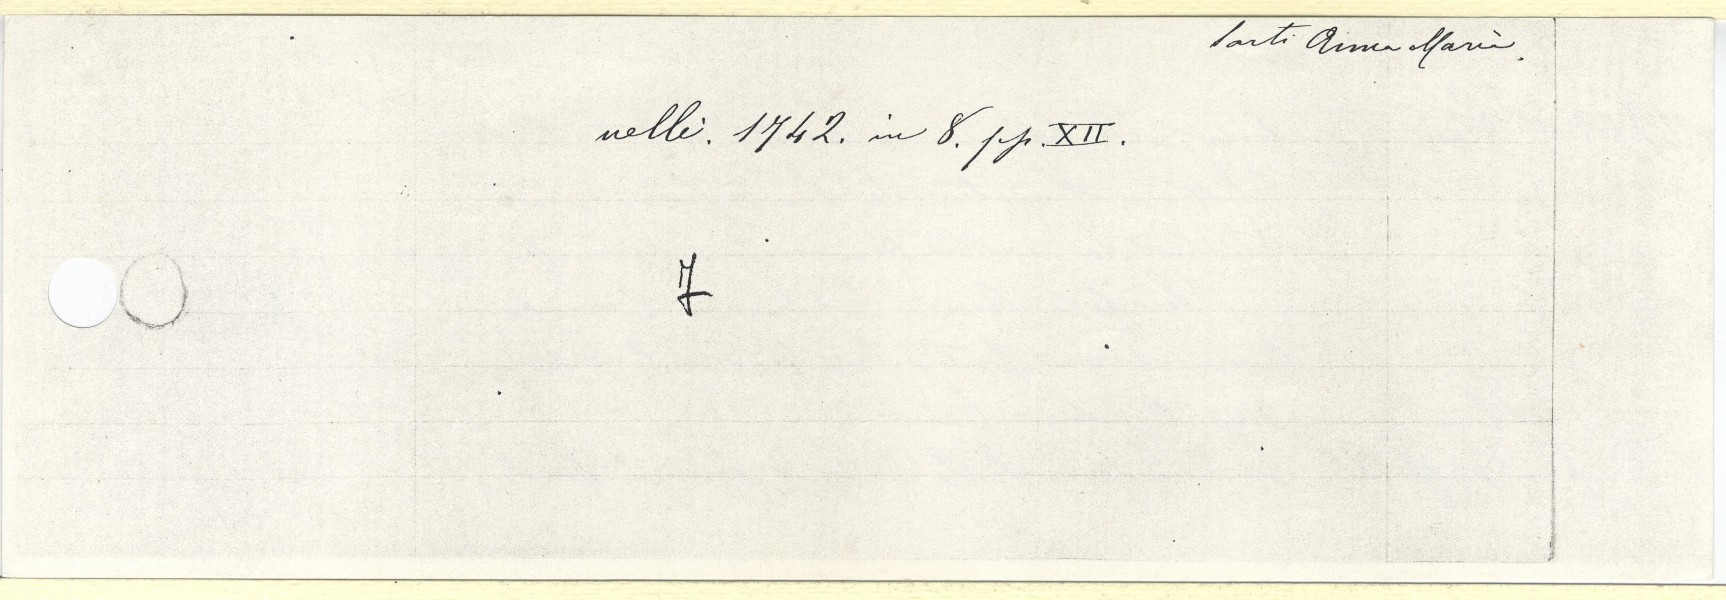 Sarti Anna Maria.
nelli. 1742. in 8. pp. XII.
7